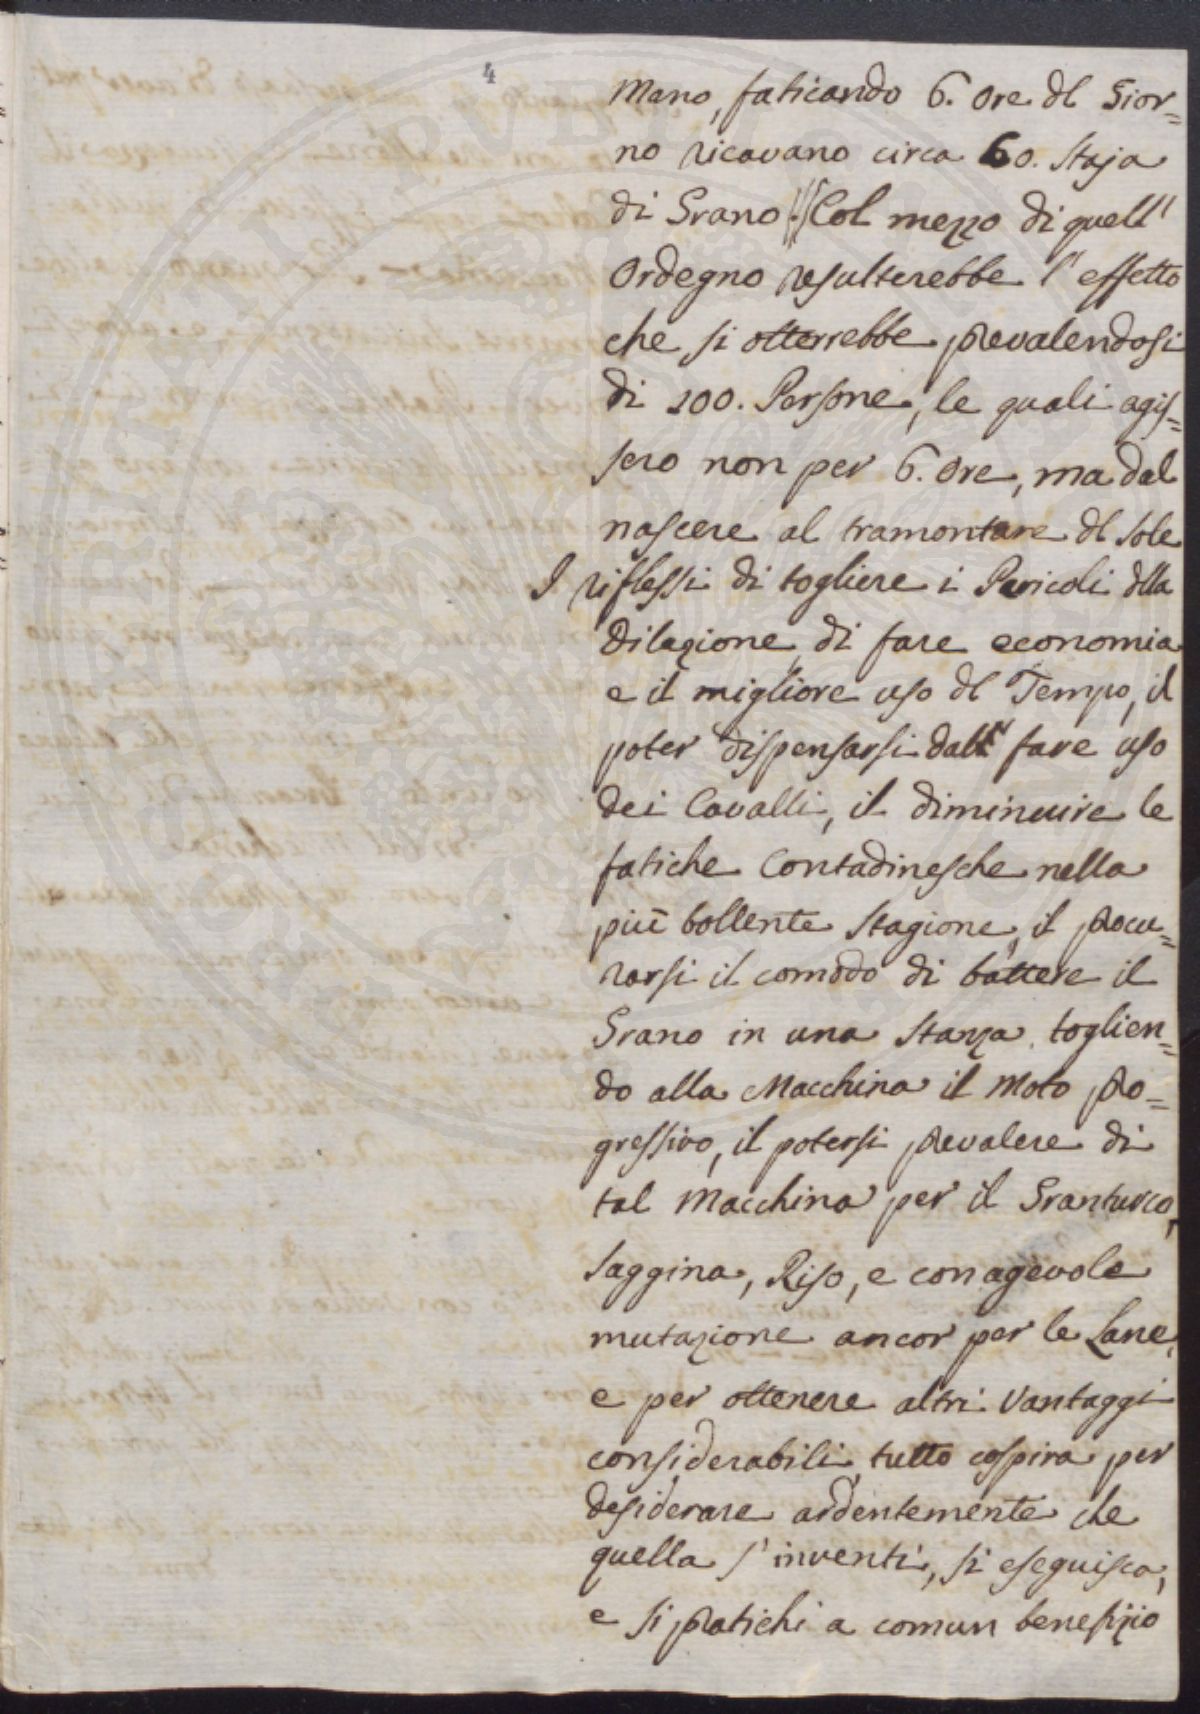 4
Mano, faticando 6. Ore dl Gior=
no ricavano circa 60. Staja
di Grano. Col mezzo di quell'
Ordegno resulterebbe l'effetto
che si otterrebbe prevalendosi
di 200. Persone, le quali agis=
sero non per 6. Ore, ma dal
nascere al tramontare dl Sole
I riflessi di togliere i Pericoli dlla
Dilazione, di fare economia
e il migliore uso dl Tempo, il
poter dispensarsi dall fare uso
dei Cavalli, il diminuire le
fatiche Contadinesche nella
più bollente Stagione, il procu=
rarsi il comodo di battere il
Grano in una Stanza toglien=
do alla Macchina il Moto pro=
gressivo, il potersi prevalere di
tal Macchina per il Granturco,
Saggina, Riso, e con agevole
mutazione ancor per le Lane,
e per ottenere altri Vantaggi
considerabili, tutto cospira per
desiderare ardentemente che
quella s'inventi, si eseguisca,
e si pratichi a comun benefizio